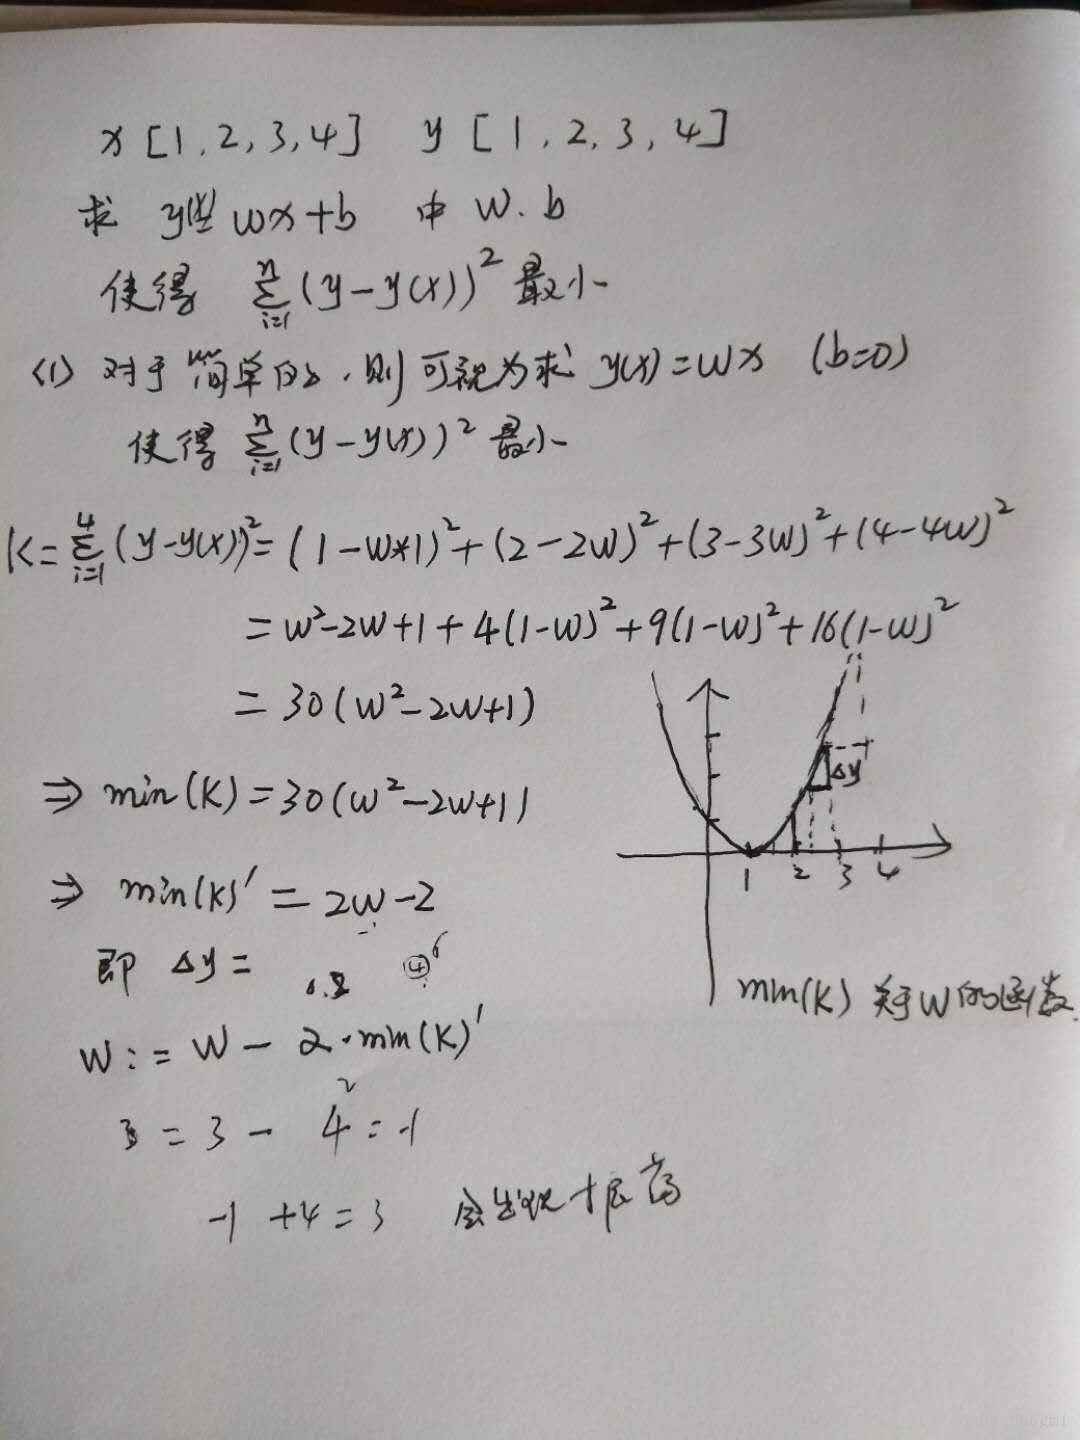 x [1, 2, 3, 4]  y [1, 2, 3, 4]
求 y(x) = wx+b 中 w. b
使得 ∑_{i=1}^{n} (y-y(x))² 最小
(1) 对于简单的, 则可视为求 y(x)=wx (b=0)
使得 ∑_{i=1}^{n} (y-y(x))² 最小
K = ∑_{i=1}^{4} (y-y(x))² = (1-w*1)² + (2-2w)² + (3-3w)² + (4-4w)²
= w²-2w+1 + 4(1-w)² + 9(1-w)² + 16(1-w)²
= 30(w²-2w+1)
⇒ min(K) = 30(w²-2w+1)
Δy
1 2 3 4
⇒ min(K)′ = 2w-2
即 Δy =
④
min(K) 关于w的函数.
w := w - 2·min(K)′
3 = 3 - 4 = -1
-1 +4 = 3 会出现